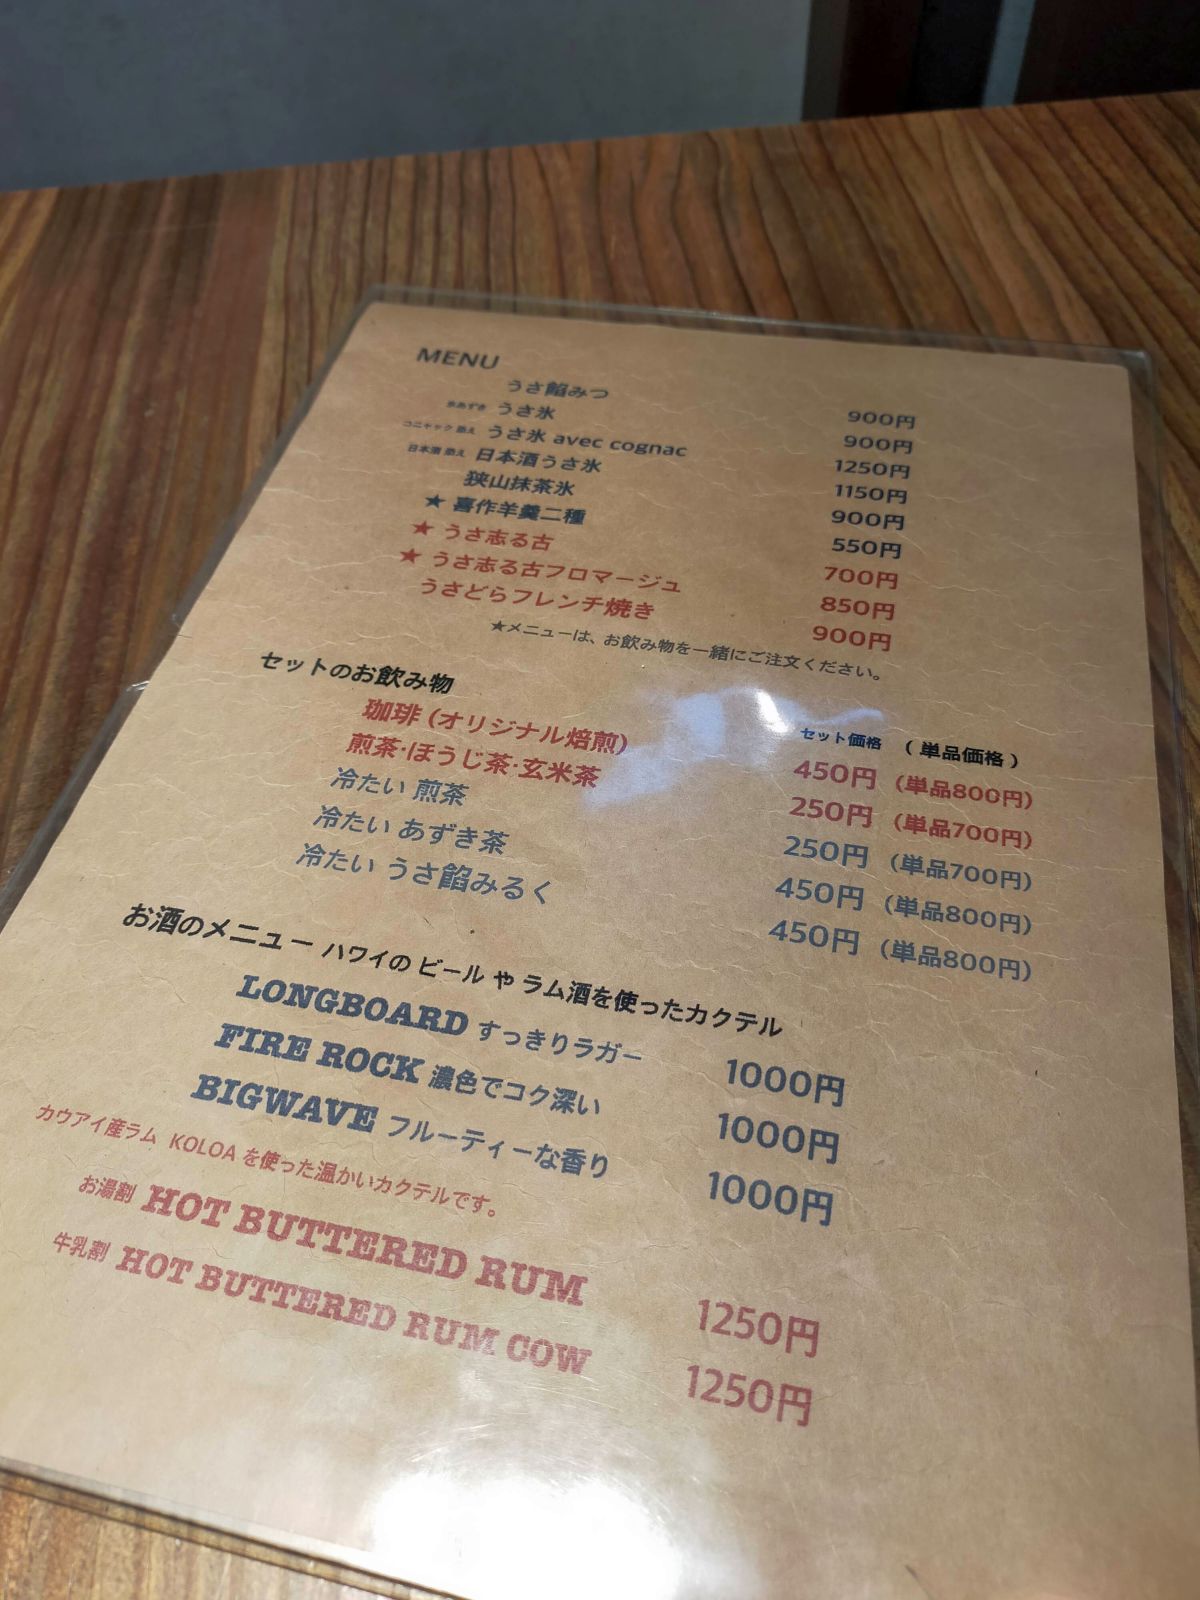 MENU
うさ餡みつ 900円
氷あずき うさ氷 900円
コニャック 添え うさ氷 avec cognac 1250円
日本酒 添え 日本酒うさ氷 1150円
狭山抹茶氷 900円
★ 喜作羊羹二種 550円
★ うさ志る古 700円
★ うさ志る古フロマージュ 850円
うさどらフレンチ焼き 900円
★メニューは、お飲み物を一緒にご注文ください。
セットのお飲み物 セット価格 (単品価格)
珈琲 (オリジナル焙煎) 450円 (単品800円)
煎茶・ほうじ茶・玄米茶 250円 (単品700円)
冷たい 煎茶 250円 (単品700円)
冷たい あずき茶 450円 (単品800円)
冷たい うさ餡みるく 450円 (単品800円)
お酒のメニュー ハワイの ビール や ラム酒を使ったカクテル
LONGBOARD すっきりラガー 1000円
FIRE ROCK 濃色でコク深い 1000円
BIGWAVE フルーティーな香り 1000円
カウアイ産ラム KOLOA を使った温かいカクテルです。
お湯割 HOT BUTTERED RUM 1250円
牛乳割 HOT BUTTERED RUM COW 1250円